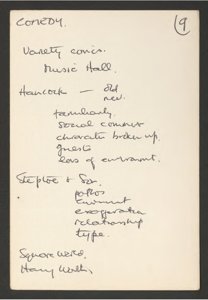 COMEDY. 9
Variety comics.
Music Hall.
Hancock — old
new.
familiarity
social comment
character broken up.
guests
loss of environment.
Steptoe & Son.
pathos
environment
exaggeration
relationship
type.
Square World.
Harry Worth.